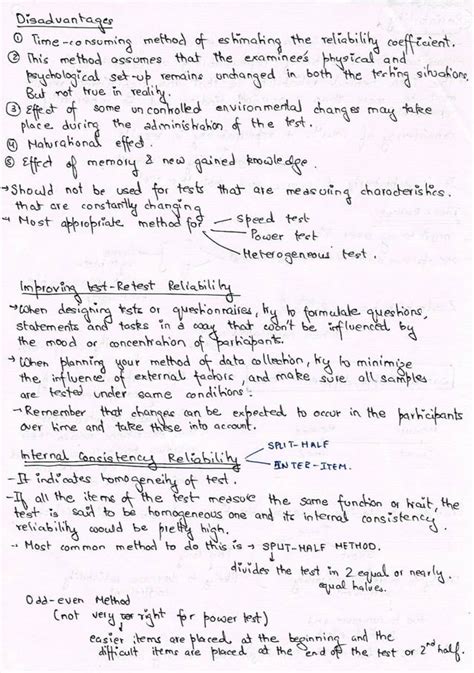 Disadvantages
① Time-consuming method of estimating the reliability coefficient.
② This method assumes that the examinee's physical and
psychological set-up remains unchanged in both the testing situations.
But not true in reality.
③ Effect of some uncontrolled environmental changes may take
place during the administration of the test.
④ Maturational effect.
⑤ Effect of memory & new gained knowledge.
→ Should not be used for tests that are measuring characteristics
that are constantly changing
- Most appropriate method for - speed test
- Power test
- Heterogeneous test.
Improving test-Retest Reliability
→ When designing tests or questionnaires, try to formulate questions,
statements and tasks in a way that won't be influenced by
the mood or concentration of participants.
→ When planning your method of data collection, try to minimize
the influence of external factors, and make sure all samples
are tested under same conditions.
→ Remember that changes can be expected to occur in the participants
over time and take these into account.
Internal Consistency Reliability - SPLIT-HALF
- INTER-ITEM.
- It indicates homogeneity of test.
- If all the items of the test measure the same function or trait, the
test is said to be homogeneous one and its internal consistency
reliability would be pretty high.
- Most common method to do this is → SPLIT-HALF METHOD.
divides the test in 2 equal or nearly
equal halves.
Odd-even Method
(not very right for power test)
easier items are placed at the beginning and the
difficult items are placed at the end of the test or 2nd half.